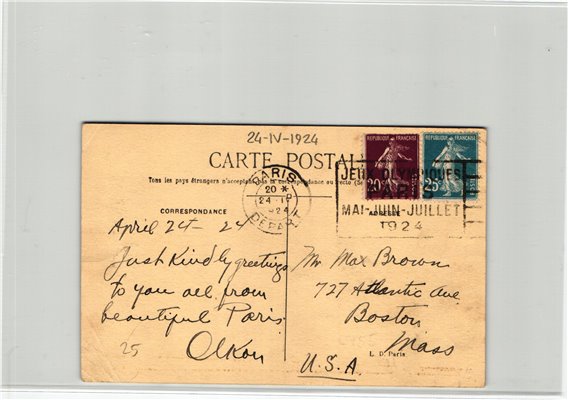 24-IV-1924
CARTE POSTALE
Tous les pays étrangers n'acceptent pas la correspondance au recto (Se
CORRESPONDANCE
ADRESSE
REPUBLIQUE FRANÇAISE
20c
REPUBLIQUE FRANÇAISE
25c
PARIS
20 *
24 - IV
1924
DEPART
JEUX OLYMPIQUES
PARIS
MAI-JUIN-JUILLET
1924
April 24-24
Just Kindly greetings
to you all from
beautiful Paris
Olkon
25
Mr Max Brown
727 Atlantic Ave
Boston
Mass
L. D. Paris
U.S.A.